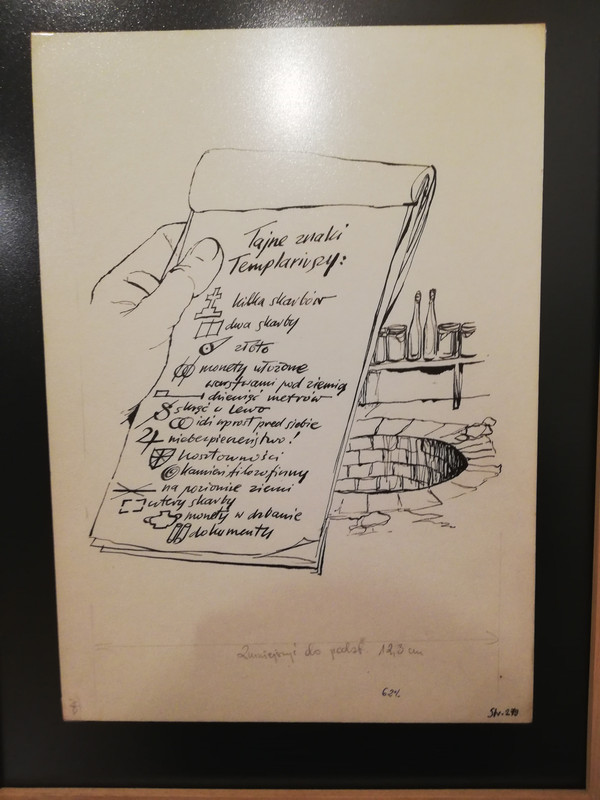 Tajne znaki
Templariuszy:
kilka skarbów
dwa skarby
złoto
monety ułożone
warstwami pod ziemią
dziewięć metrów
skręć w lewo
idź wprost przed siebie
niebezpieczeństwo!
kosztowności
kamień filozoficzny
na poziomie ziemi
cztery skarby
monety w dzbanie
dokumenty
Zmniejszyć do 12,3 cm
62%
Str. 240